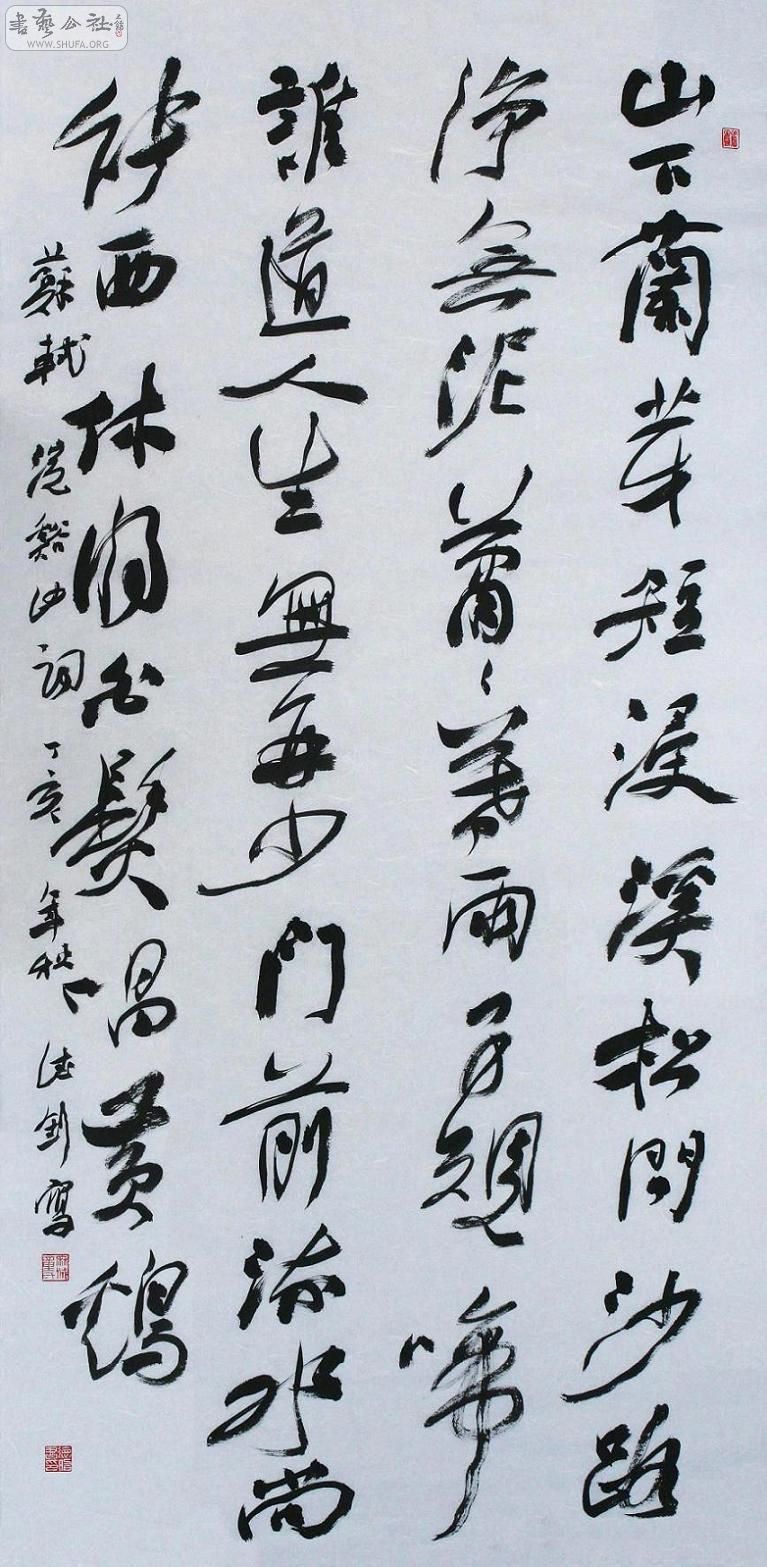 書藝公社
WWW.SHUFA.ORG
山下蘭芽短浸溪松間沙路
淨無泥蕭々暮雨子規啼
誰道人生無再少門前流水尚
能西休將白髮唱黃鷄
蘇軾浣谿沙詞丁亥年秋寫